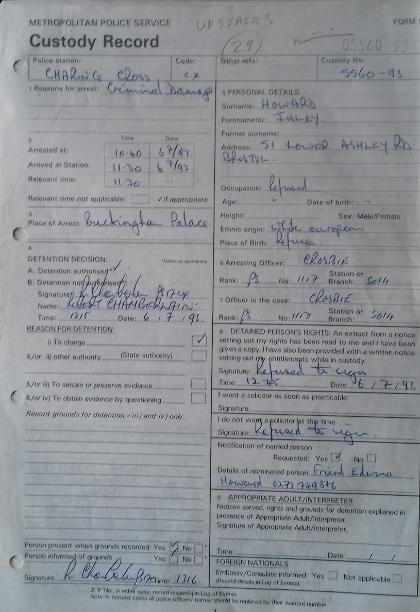 METROPOLITAN POLICE SERVICE
UPSTAIRS
FORM
Custody Record
(29)
05560 93
Police station:
CHARING CROSS
Code:
CX
Other refs:
Custody No:
5560-93
1 Reasons for arrest: Criminal Damage
2
Time Date
Arrested at: 10.40 6/7/93
Arrived at Station: 11.30 6/7/93
Relevant time: 11.30 "
Relevant time not applicable: if appropriate
3
Place of Arrest: Buckingham Palace
4
DETENTION DECISION:
A. Detention authorised
B. Detention not authorised
Signature:
Name: ROBERT CHAMBERLAIN
Time: 1215 Date: 6.7.93
REASON FOR DETENTION:
i) To charge
&/or ii) other authority (State authority)
&/or iii) To secure or preserve evidence
&/or iv) To obtain evidence by questioning
Record grounds for detention - iii) and iv) only.
Person present when grounds recorded: Yes No
Person informed of grounds Yes No
Signature: Time: 1216
5 PERSONAL DETAILS
Surname: HOWARD
Forename(s):
Former surname:
Address: 51 LOWER ASHLEY RD
BRISTOL
Occupation: Refused
Age: " Date of birth: "
Height: Sex: Male/Female
Ethnic origin: white european
Place of Birth: Refused
6 Arresting Officer: CROSBIE
Rank: PS No: 1117 Station or Branch: SO14
7 Officer in the case: CROSBIE
Rank: PS No: 1117 Station or Branch: SO14
8 DETAINED PERSON'S RIGHTS: An extract from a notice
setting out my rights has been read to me and I have been
given a copy. I have also been provided with a written notice
setting out my entitlements while in custody.
Signature: Refused to sign
Time: Date: 6/7/93
I want a solicitor as soon as practicable:
Signature:
I do not want a solicitor at this time:
Signature: Refused to sign
Notification of named person
Requested: Yes No
Details of nominated person: Friend Edwina
Howard 0272 749876
9 APPROPRIATE ADULT/INTERPRETER
Notices served, rights and grounds for detention explained in
presence of Appropriate Adult/Interpreter.
Signature of Appropriate Adult/Interpreter:
Time: Date: / /
FOREIGN NATIONALS
Embassy/Consulate informed Yes Not applicable
(Record details in Log of Events)